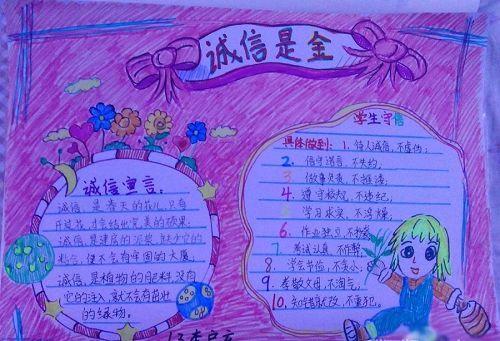 诚信是金
诚信宣言：
诚信，是春天的花儿，只有
开过花，才会结出完美的硕果；
诚信是建房的泥浆，缺少它的
粘合，便不会有牢固的大厦
诚信，是植物的肥料，没有
它的注入，就不会有茁壮
的绿物。
学生守信
具体做到：1. 待人诚信，不虚伪；
2. 信守诺言，不失约；
3. 做事负责，不推诿；
4. 遵守校规，不违纪；
5. 学习求实，不浮躁；
6. 作业独立，不抄袭
7. 考试认真，不作弊
8. 学会节俭，不贪小；
9. 孝敬父母，不淘气；
10. 知错就改，不重犯。